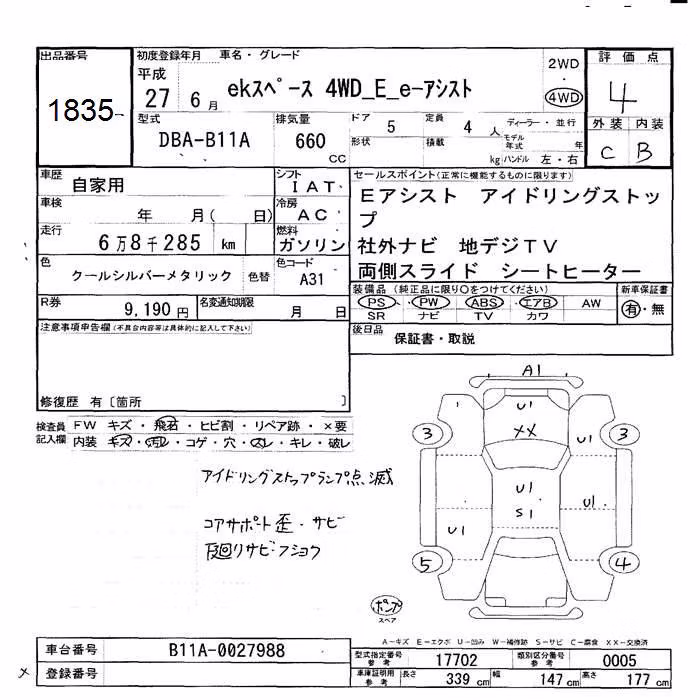 出品番号
1835
初度登録年月 車名・グレード
平成
27 6月
ekスペース 4WD_E_e-アシスト
2WD
4WD
評価点
4
外装 内装
C B
型式
DBA-B11A
排気量
660
CC
ドア 5
定員 4 人
ディーラー・並行
形状
積載
kg
モデル年式 年
ハンドル 左・右
車歴 自家用
シフト IAT
車検 年 月( 日)
冷房 AC
走行 6万8千285 km
燃料 ガソリン
色 クールシルバーメタリック 色替
色コード A31
R券 9,190円
名変通知期限 月 日
セールスポイント(正常に機能するものに限ります)
Eアシスト アイドリングストッ
プ
社外ナビ 地デジTV
両側スライド シートヒーター
装備品(純正品に限り○をつけてください)
PS・PW ABS・エアB AW
SR ナビ TV カワ
新車保証書
有・無
後日品
保証書・取説
注意事項申告欄(不具合内容等は具体的に記入して下さい)
修復歴 有〔箇所 〕
検査員記入欄
FW キズ・飛石・ヒビ割・リペア跡・×要
内装 キズ・汚レ・コゲ・穴・スレ・キレ・破レ
アイドリングストップランプ点滅
コアサポート歪・サビ
下廻りサビ・フショク
A1
U1
XX
3
3
U1
U1
S1
U1
U1
5
4
ポンプ
スペア
A-キズ E-エクボ U-凹み W-補修跡 S-サビ C-腐食 XX-交換済
車台番号 B11A-0027988
登録番号
×
型式指定番号 参考 17702
類別区分番号 参考 0005
車庫証明用 参考 長さ 339 cm 幅 147 cm 高さ 177 cm